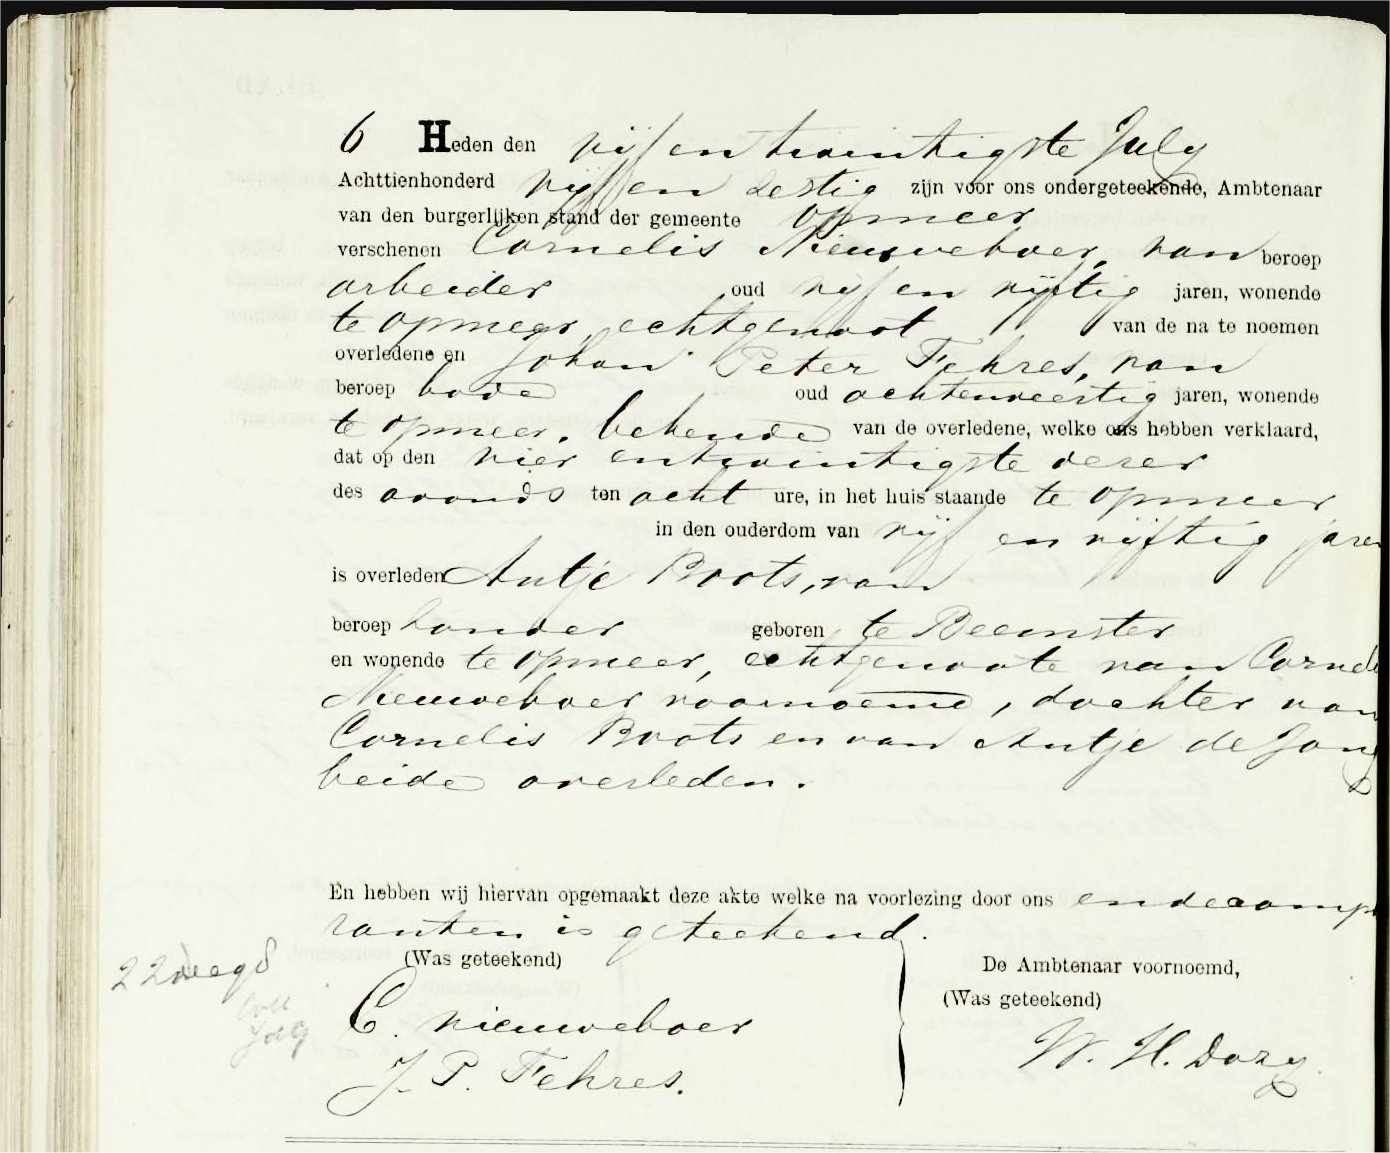 6 Heden den vijf en twintigste July
Achttienhonderd vijf en zestig zijn voor ons ondergeteekende, Ambtenaar
van den burgerlijken stand der gemeente Opmeer
verschenen Cornelis Nieuweboer, van beroep
arbeider oud vijf en vijftig jaren, wonende
te Opmeer, echtgenoot van de na te noemen
overledene en Johan Peter Fehres, van
beroep bode oud achtenveertig jaren, wonende
te Opmeer, bekende van de overledene, welke ons hebben verklaard,
dat op den vier entwintigste dezer
des avonds ten acht ure, in het huis staande te Opmeer
in den ouderdom van vijf en vijftig jaren
is overleden Antje Boots, van
beroep zonder geboren te Beemster
en wonende te Opmeer, echtgenoote van Corneli
Nieuweboer voornoemd, dochter van
Cornelis Boots en van Antje de Jong
beide overleden.
En hebben wij hiervan opgemaakt deze akte welke na voorlezing door ons endecomp
ranten is geteekend.
(Was geteekend)
C. Nieuweboer
J. P. Fehres.
De Ambtenaar voornoemd,
(Was geteekend)
W. H. Dozy.
22